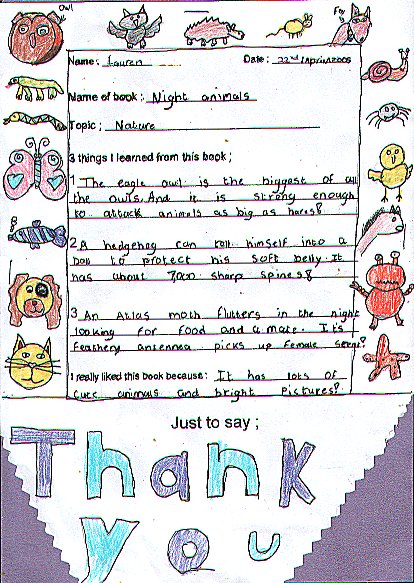 Owl
Fox
Name: Lauren
Date: 22nd April 2005
Name of book: Night animals
Topic; Nature
3 things I learned from this book;
1 The eagle owl is the biggest of all
the owls. And it is strong enough
to attack animals as big as hares!
2 A hedgehog can roll himself into a
ball to protect his soft belly. It
has about 7,000 sharp spines!
3 An Atlas moth flutters in the night
looking for food and a mate. It's
feathery antennea picks up female scent!
I really liked this book because: It has lots of
cute animals and bright pictures!
Just to say;
Thank
you